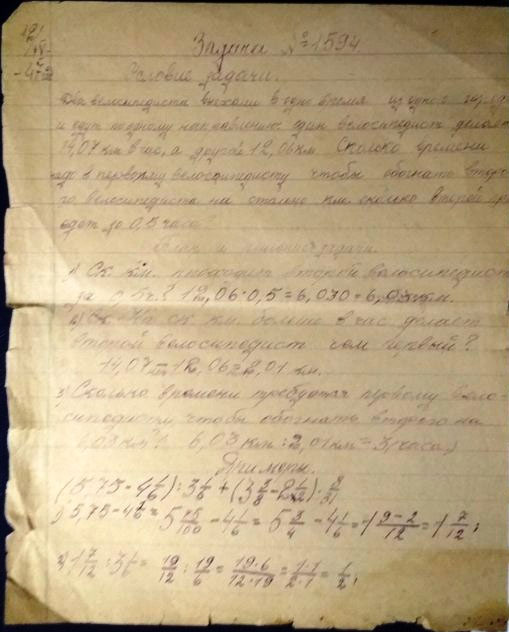 Задача № 1594.
Условие задачи.
Два велосипедиста выехали в одно время из одного
и едут по одному направлению: один велосипедист делает
14,07 км в час, а другой 12,06 км. Сколько времени
надо первому велосипедисту чтобы обогнать второ-
го велосипедиста на столько км. сколько второй
едет до 0,5 часа?
План и решение задачи.
1) Ск. км. проходит второй велосипедист
за 0,5 ч.? 12,06·0,5=6,030=6,03 км.
2) ск. км. больше в час делает
второй велосипедист чем первый?
14,07-12,06=2,01 км.
3) Сколько времени требуется первому вело-
сипедисту, чтобы обогнать второго на
6,03 км? 6,03 км:2,01 км=3(часа)
Примеры.
(5,75-4 1/6):3 1/6+(3 3/8-2 1/2)·8/21
1) 5,75-4 1/6=5 75/100-4 1/6=5 3/4-4 1/6=1 9-2/12=1 7/12;
2) 1 7/12:3 1/6=19/12:19/6=19·6/12·19=1·1/2·1=1/2;